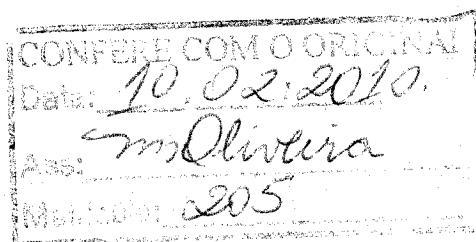 CONFERE COM O ORIGINAL
Data: 10.02.2010.
Ass: msOliveira
Matrícula: 205